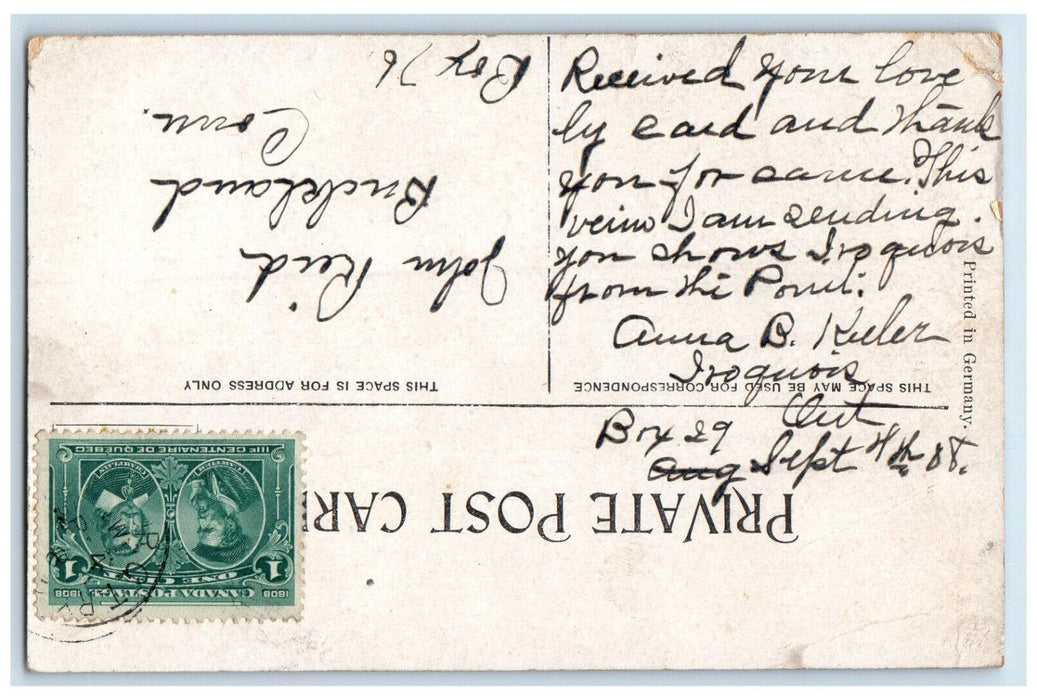 Received your love
ly card and thank
you for same. This
veiw I am sending.
you shows Iroquois
from the Point.
Anna B. Keeler
Iroquois
Ont
Box 29
Aug Sept 4th 08.
John Reid
Buckland
Conn.
Box 76
THIS SPACE IS FOR ADDRESS ONLY
THIS SPACE MAY BE USED FOR CORRESPONDENCE
Printed in Germany.
PRIVATE POST CAR
IIIe CENTENAIRE DE QUEBEC
CARTIER
CHAMPLAIN
1 ONE CENT 1
1608 CANADA POSTAGE 1908